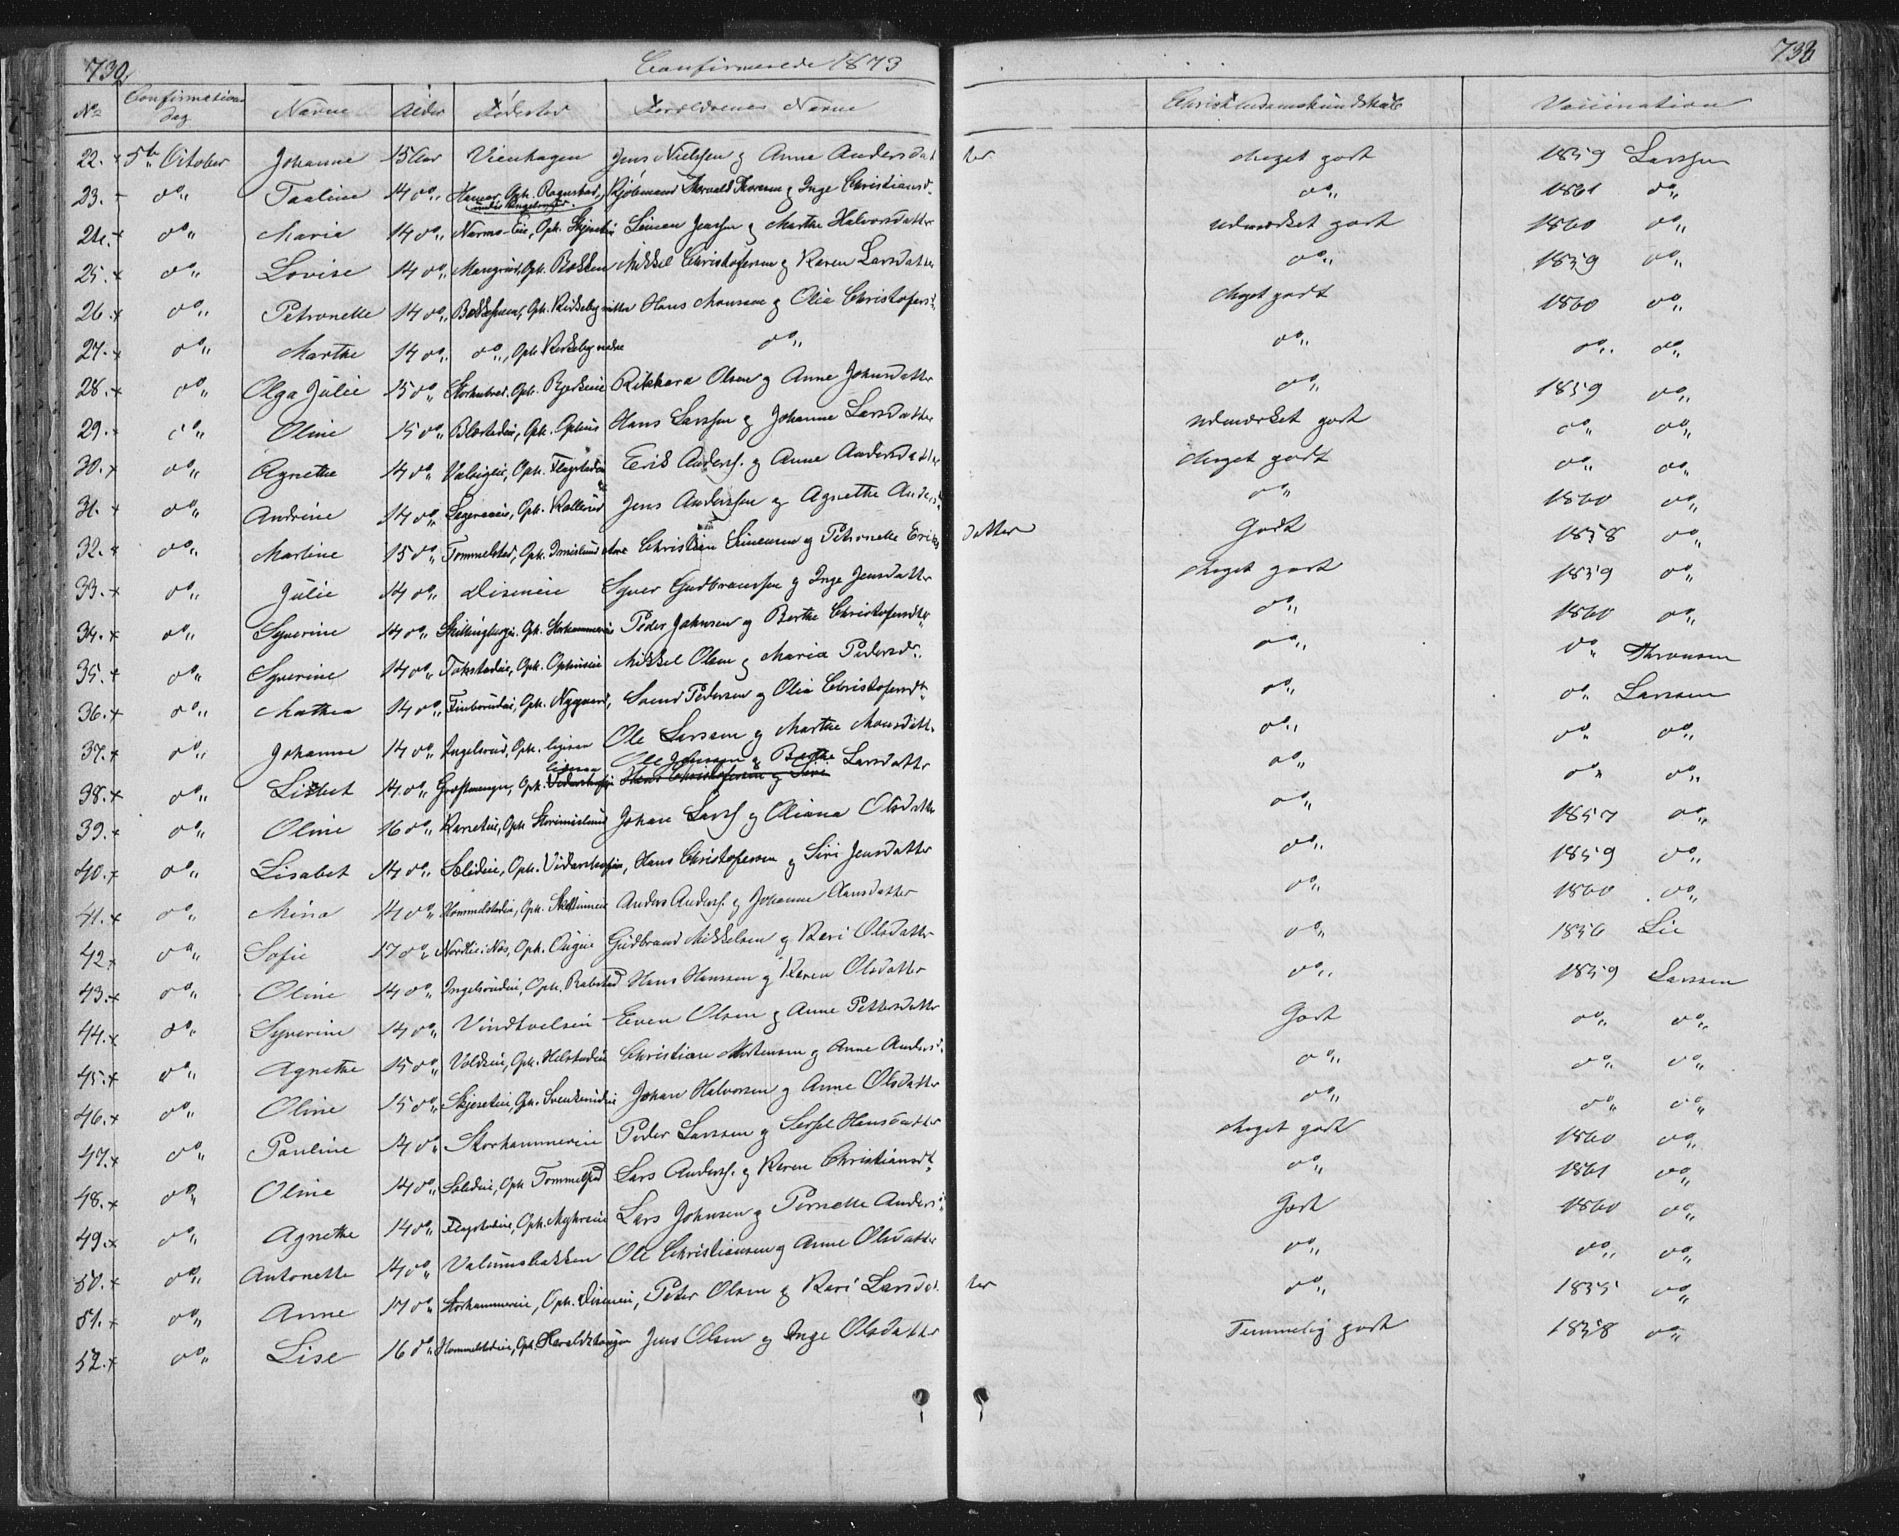 732 Confirmerede 1873 733
No Confirmations dag Navne Alder Fødested Forældrenes Navne Christendomskundskab Vaccination
22. + 5te October Johanne 15 Aar Vienhagen Jens Nielssen og Anna Andersdatter Meget godt 1859 Larssen
23. do„ Taaline 14 do„ Hamar, Oph. Rognstad, Thorvald Thoresen og Inge Christiansd. do„ 1861 do„
24. + do„ Maria 14 do„ Simen Jenssen og Marthe Halvorsdatter udmærket godt 1860 do„
25. + do„ Lovise 14 do„ Oph. Bakken Mikkel Christofersen og Karen Larsdatter do„ 1859 do„
26. + do„ Petronelle 14 do„ Oph. Kirkeby Hans Monsen og Olia Christofers Meget godt 1860 do„
27. + do„ Marthe 14 do„ do„, Oph. Kirkeby nedre do„ do„ do„ do„
28. + do„ Olga Julie 15 do„ Oph. Bjerkeeie Rikhard Olsen og Anne Johnsdatter do„ 1859 do„
29. do„ Oline 15 do„ Oph. Hans Larssen og Johanne Larsdatter udmærket godt do„ do„
30. + do„ Agnethe 14 do„ Oph. Flagstadeie Erik Anderss. og Anne Andersdatter Meget godt do„ do„
31. + do„ Andrine 14 do„ Oph. Jens Anderssen og Agnethe Anders do„ 1860 do„
32. + do„ Martine 15 do„ Tommelstad, Oph. Imislund store Christian Simensen og Petronelle Ericksdatter Godt 1858 do„
33. + do„ Julie 14 do„ Diseneie Syver Gudbranssen og Inge Jensdatter Meget godt 1859 do„
34. + do„ Syverine 14 do„ Oph. Storhammereie Peder Johnsen og Berthe Christofersdtr do„ 1860 do„
35. + do„ Syverine 14 do„ Tokstadeie, Oph. Mikkel Olsen og Maria Pedersdr. do„ do„ Thronsen
36. + do„ Mathea 14 do„ Finborudeie, Oph. Nygaard, Svend Pedersen og Olia Christofersdt. do„ do„ Larssen
37. + do„ Johanne 14 do„ Ingelsrud, Oph. ligesaa Ole Larssen og Marthe Monsdatt. do„ do„ do„
38. + do„ Lisbet 14 do„ Oph. Vidarshofeie ligesaa Hans Christofersen og Siri Ole Johnssen og Berthe Larsdatter do„ do„ do„
39. + do„ Oline 16 do„ Oph. Storimislund Johan Larss. og Oliana Olsdatter do„ 1857 do„
40. + do„ Lisabet 14 do„ Oph. Vidarshofeie, Hans Christofersen og Siri Jensdatter do„ 1859 do„
41. + do„ Mina 14 do„ Hommelstadeie, Oph. Anders Anderss. og Johanne Hansdatter do„ 1860 do„
42. + do„ Sofie 17 do„ Nordlie i Næs, Oph. Gudbrand Mikkelsen og Kari Olsdatter do„ 1856 Lie
43. + do„ Oline 14 do„ Ingelsrudeie, Oph. Rabstad Hans Hanssen og Karen Olsdatter do„ 1859 Larssen
44. + do„ Syverine 14 do„ Vindtvelseie Even Olsen og Anne Pettersdatter Godt do„ do„
45. + do„ Agnethe 15 do„ Voldseie, Oph. Helstadeie Christian Mortensen og Anne Andersd. do„ do„ do„
46. + do„ Oline 15 do„ Skjeseteie, Oph. Svenkerudeie Johan Halvorsen og Anne Olsdatter do„ do„ do„
47. + do„ Pauline 14 do„ Storhammereie Peder Larssen og Sersel Hansdatter Meget godt 1860 do„
48. + do„ Oline 14 do„ Oph. Tommelstad Lars Anderss. og Karen Christiansdt. do„ 1861 do„
49. + do„ Agnethe 14 do„ Flagstadeie, Oph. Myhreeie Lars Johnsen og Pernelle Anders Godt 1860 do„
50. + do„ Antonette 14 do„ Valumsbakken Ole Christiansen og Anne Olsdatter do„ do„ do„
51. + do„ Anne 17 do„ Storhammereie, Oph. Diseneie, Peter Olsen og Kari Larsdatter do„ 1855 do„
52. + do„ Lise 16 do„ Hommelstadeie, Oph. Haraldshaugen Jens Olsen og Inge Olsdatter Temmelig godt 1858 do„